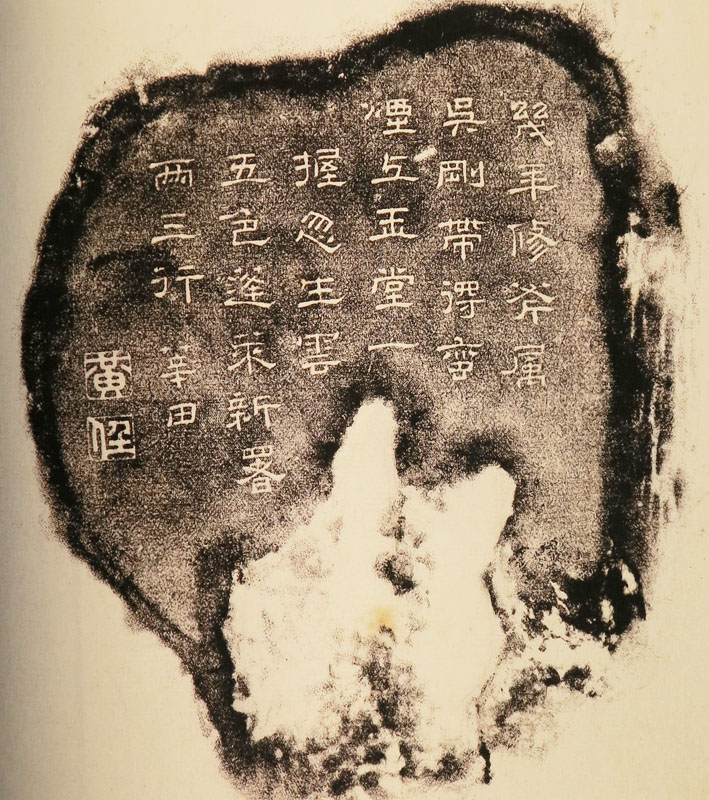 幾年修斧屬
吳剛帶得蠻
煙上玉堂一
握忽生雲
五色蓬萊新署
兩三行 莘田
黃任